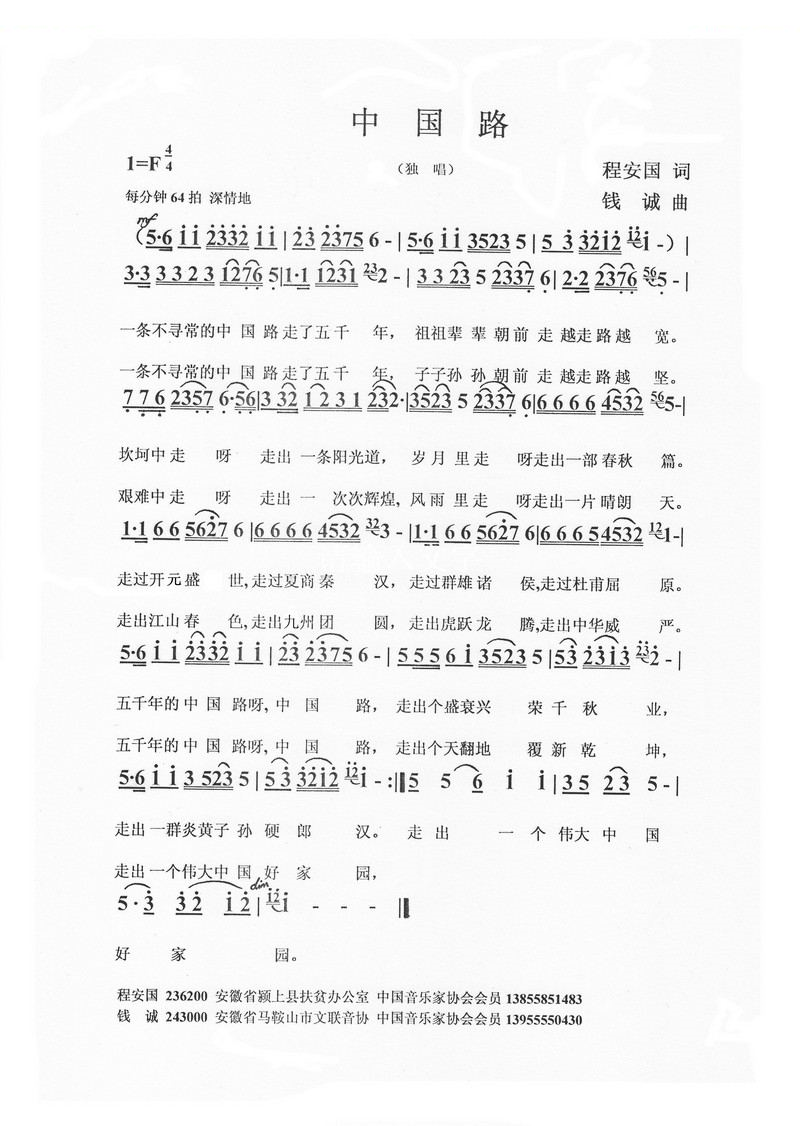 中 国 路
1=F 4/4
（独 唱）
程安国 词
每分钟 64 拍 深情地
钱 诚 曲
mf
(5·6 i i 2332 i i | 23 2375 6 - | 5·6 i i 3523 5 | 5 3 32i2 i2 i - ) |
3·3 3 3 2 3 1276 5 | 1·1 1231 23 2 - | 3 3 23 5 2337 6 | 2·2 2376 56 5 - |
一条不寻常的中 国 路 走了五千 年， 祖祖辈 辈 朝前 走 越走路越 宽。
一条不寻常的中 国 路 走了五千 年， 子子孙 孙 朝前 走 越走路越 坚。
7 7 6 2357 6·56 | 3 32 1 2 3 1 232· | 3523 5 2337 6 | 6 6 6 6 4532 56 5 - |
坎坷中走 呀 走出 一条阳光道， 岁 月 里 走 呀走出一部春秋 篇。
艰难中走 呀 走出 一 次次辉煌, 风 雨 里 走 呀走出一片晴朗 天。
1·1 6 6 5627 6 | 6 6 6 6 4532 32 3 - | 1·1 6 6 5627 6 | 6 6 6 6 4532 12 1 - |
走过开元盛 世,走过夏商秦 汉， 走过群雄诸 侯,走过杜甫屈 原。
走出江山春 色,走出九州团 圆， 走出虎跃龙 腾,走出中华威 严。
5·6 i i 2332 i i | 23 2375 6 - | 5 5 5 6 i 3523 5 | 53 23i3 23 2 - |
五千年的 中 国 路呀, 中 国 路， 走出个盛衰兴 荣 千 秋 业，
五千年的 中 国 路呀, 中 国 路， 走出个天翻地 覆 新 乾 坤，
5·6 i i 3 523 5 | 5 3 32i2 i2 i - :‖ 5 5 6 i i | 3 5 2 3 5 - |
走出一群炎黄子 孙 硬 郎 汉。 走 出 一 个 伟大 中 国
走出一个伟大中 国 好 家 园，
dim
5·3 3 2 i 2 | i2 i - - - ‖
好 家 园。
程安国 236200 安徽省颍上县扶贫办公室 中国音乐家协会会员 13855851483
钱 诚 243000 安徽省马鞍山市文联音协 中国音乐家协会会员 13955550430